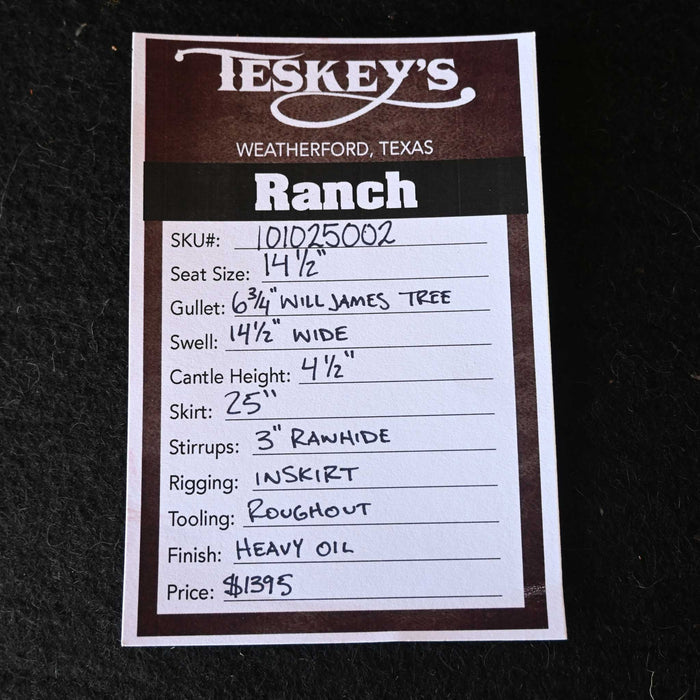 TESKEY'S
WEATHERFORD, TEXAS
Ranch
SKU#: 101025002
Seat Size: 14 1/2"
Gullet: 6 3/4" WILL JAMES TREE
Swell: 14 1/2" WIDE
Cantle Height: 4 1/2"
Skirt: 25"
Stirrups: 3" RAWHIDE
Rigging: INSKIRT
Tooling: ROUGHOUT
Finish: HEAVY OIL
Price: $1395